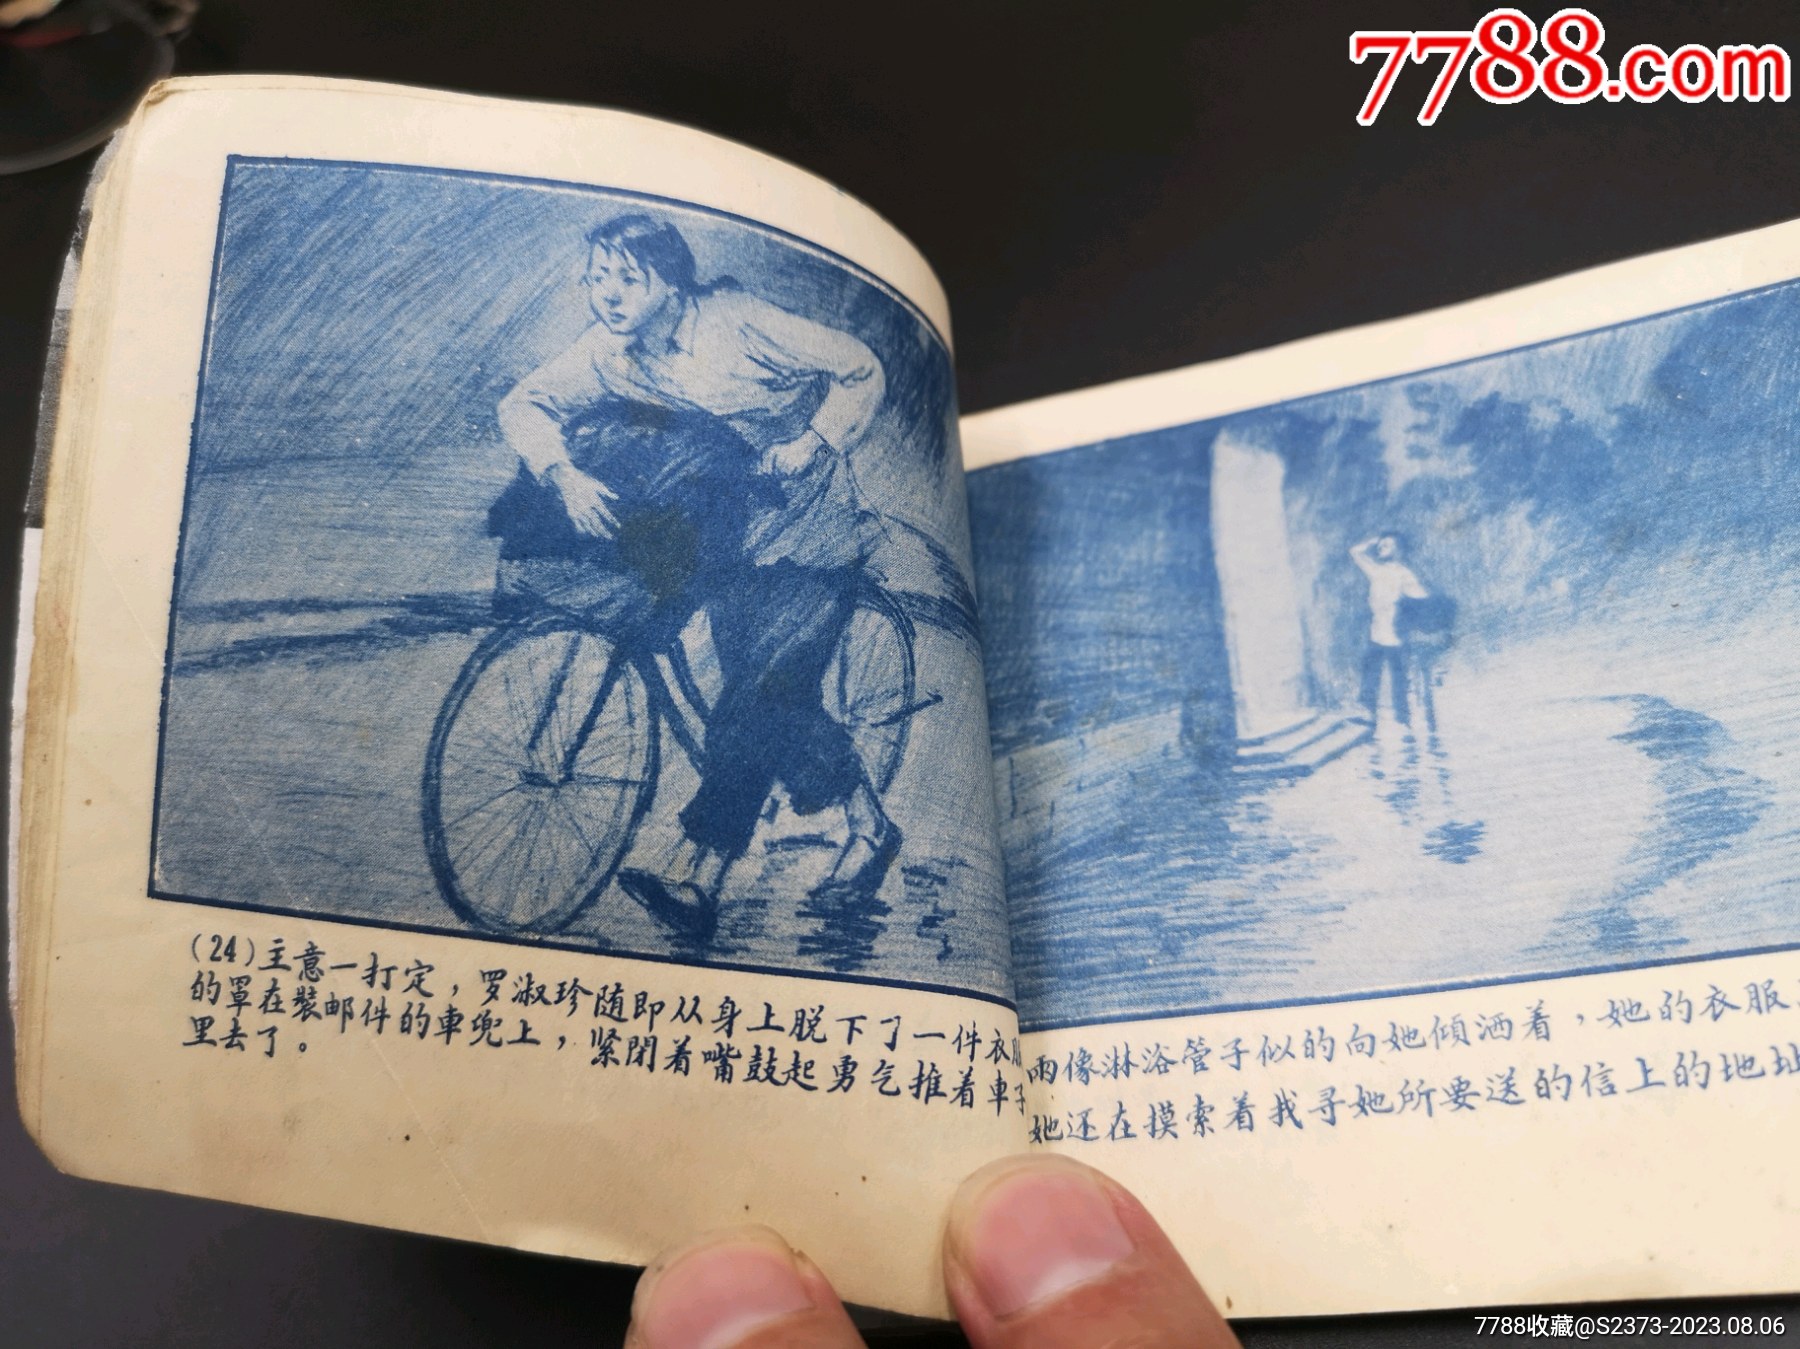 7788.com
(24)主意一打定，罗淑珍随即从身上脱下了一件衣
的罩在裝邮件的車兜上，紧閉着嘴鼓起勇气推着車子
里去了。
雨像淋浴管子似的向她傾洒着，她的衣服
她还在摸索着找寻她所要送的信上的地址
7788收藏@S2373-2023.08.06